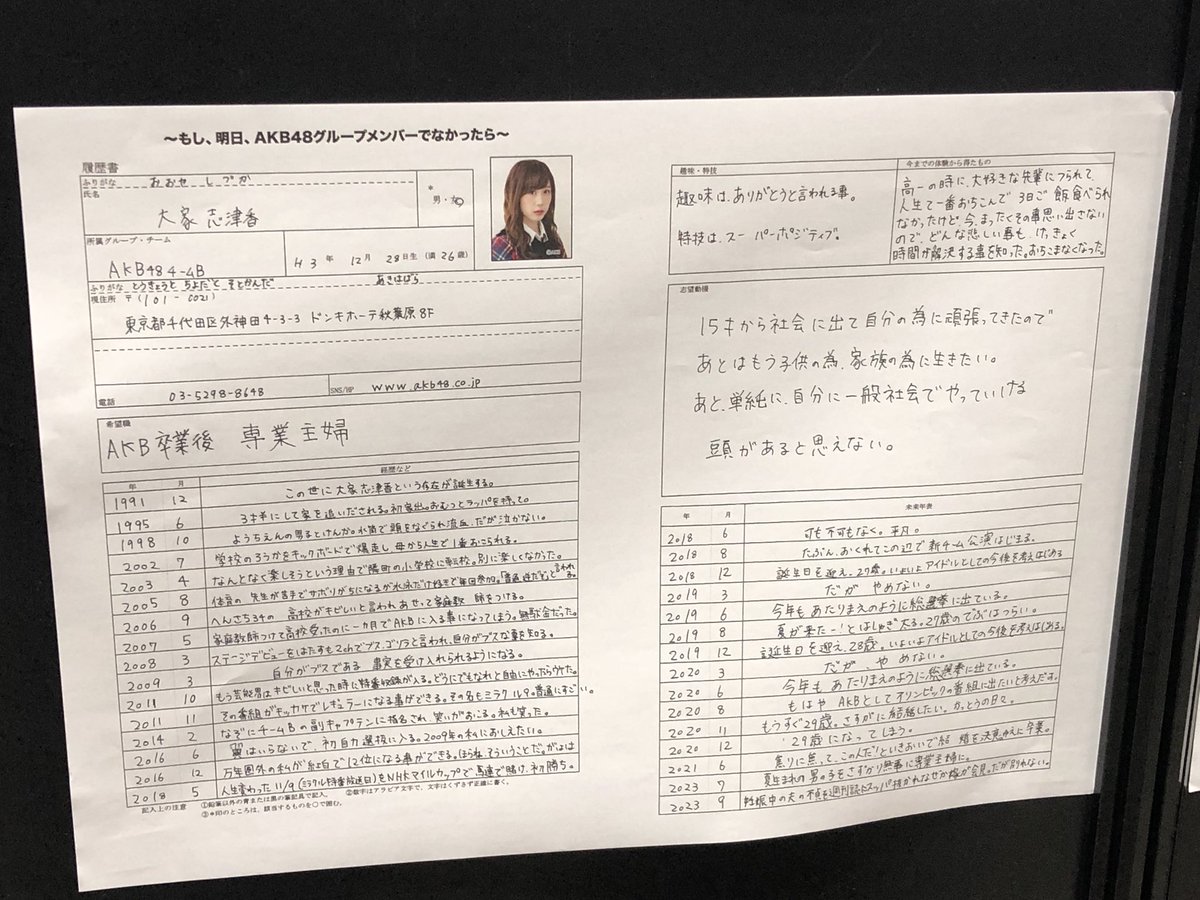 ～もし、明日、AKB48グループメンバーでなかったら～
履歴書
ふりがな おおや しづか
氏名
大家 志津香
*
男・女
所属グループ・チーム
AKB48 4-4B
H3年 12月 28日生 (満26歳)
ふりがな とうきょうと ちよだく そとかんだ あきはばら
現住所 〒(101-0021)
東京都千代田区外神田4-3-3 ドンキホーテ秋葉原8F
電話 03-5298-8648
SNS/HP www.akb48.co.jp
希望職
AKB卒業後 専業主婦
年 月 経歴など
1991 12 この世に大家志津香という存在が誕生する。
1995 6 3才半にして家を追いだされる。初家出。おむつとラッパを持って。
1998 10 ようちえんの男子とけんか。水筒で頭をなぐられ流血。だが泣かない。
2002 7 学校のろうかをキックボードで爆走し母から人生で1番おこられる。
2003 4 なんとなく楽しそうという理由で隣町の小学校に転校。別に楽しくなかった。
2005 8 体育の先生が苦手でサボりがちになるが水泳だけは好きで毎回参加。
2006 9 へんさち34の高校がキビしいと言われあせって家庭教師をつける。
2007 5 家庭教師つけて高校受かったのに一カ月でAKBに入る事になってしまう。無駄金だった。
2008 3 ステージデビューをはたすも2chでブス、ゴリラと言われ、自分がブスな事を知る。
2009 3 自分がブスである事実を受け入れられるようになる。
2011 10 もう芸能界はキビしいと思った時に特番収録が入る。どうにでもなれと自由にやったらウケた。
2011 11 その番組がキッカケでレギュラーになる事ができる。その名もミラクル9。普通にすごい。
2014 2 なぞにチームBの副キャプテンに指名され、笑いがおこる。私も笑った。
2016 6 翼はいらないで、初自力選抜に入る。2009年の私におしえたい。
2016 12 万年圏外の私が紅白で12位になる事ができる。ほらね、そういうことだ。
2018 5 人生変わった11/9(ミラクル特番放送日)をNHKマイルカップで馬連で賭け、初勝ち。
記入上の注意 ①鉛筆以外の青または黒の筆記具で記入。 ②数字はアラビア文字で、文字はくずさず正確に書く。
③*印のところは、該当するものを○で囲む。
趣味・特技
趣味は、ありがとうと言われる事。
特技は、スーパーポジティブ。
今までの体験から得たもの
高一の時に、大好きな先輩にフられて、
人生で一番おちこんで3日ご飯食べられ
なかったけど、今、まったくその事思い出さない
ので、どんな悲しい事も、けっきょく
時間が解決する事を知った。おちこまなくなった。
志望動機
15才から社会に出て自分の為に頑張ってきたので
あとはもう子供の為、家族の為に生きたい。
あと、単純に、自分に一般社会でやっていける
頭があると思えない。
年 月 未来年表
2018 6 可も不可もなく。平凡。
2018 8 たぶん、おくれてこの辺で新チーム公演はじまる。
2018 12 誕生日を迎え、27歳。いよいよアイドルとしての今後を考えはじめる
2019 3 だが やめない。
2019 6 今年も あたりまえのように総選挙に出ている。
2019 8 夏が来たー!とはしゃぎ太る。27歳のでぶはつらい。
2019 12 誕生日を迎え、28歳。いよいよアイドルとしての今後を考えはじめる。
2020 3 だが やめない。
2020 6 今年も あたりまえのように総選挙に出ている。
2020 8 もはや AKBとしてオリンピックの番組に出たいと考えだす。
2020 11 もうすぐ29歳。さすがに結婚したい。かっとうの日々。
2020 12 29歳になってしまう。
2021 6 焦りに焦って、この人だ!といきおいで結婚を決意。ゆえに卒業。
2023 7 夏生まれの男の子をさずかり無事に専業主婦に。
2023 9 妊娠中の夫の不貞を週刊誌にスッパ抜かれなぜか俺が会見。だが別れない。